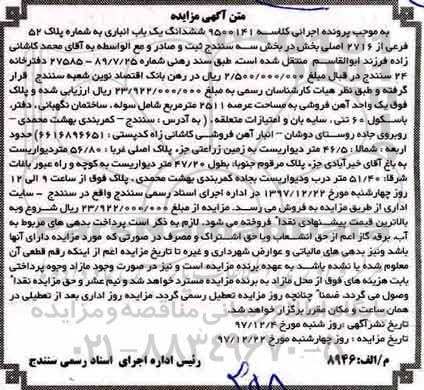 متن آگهی مزایده
به موجب پرونده اجرائی کلاسه ۹۵۰۰۱۴۱ ششدانگ یک باب انباری به شماره پلاک ۵۲
فرعی از ۲۷۱۶ اصلی بخش در بخش سه سنندج ثبت و صادر و مع الواسطه به آقای محمد کاشانی
زاده فرزند ابوالقاسم منتقل شده است، طبق سند رهنی شماره ۸۹/۷/۲۵ - ۲۷۵۸۵ دفترخانه
۲۴ سنندج در قبال مبلغ ۲/۵۰۰/۰۰۰/۰۰۰ ریال در رهن بانک اقتصاد نوین شعبه سنندج قرار
گرفته و طبق نظر هیات کارشناسان رسمی به مبلغ ۲۳/۹۲۲/۰۰۰/۰۰۰ ریال ارزیابی شده و پلاک
فوق یک واحد آهن فروشی به مساحت عرصه ۲۵۱۱ مترمربع شامل سوله، ساختمان نگهبانی، دفتر،
باسکول ۶۰ تنی، سایه بان و امتیازات متعلقه، ( به آدرس : سنندج - کمربندی بهشت محمدی -
روبروی جاده روستای دوشان - انبار آهن فروشی کاشانی زاه کدپستی : ۶۶۱۶۸۹۶۶۵۱) حدود
اربعه : شمالا : ۴۶/۵ متر دیواریست به زمین زراعتی جز، پلاک اصلی غربا : ۵۶/۸۰ متردیواریست
به باغ آقای خیرآبادی جزء پلاک مرقوم جنوبا، بطول ۴۷/۲۰ متر دیواریست به کوچه و راه عبور باغات
شرقا: ۵۱/۴۰ متر درب ودیواریست بجاده کمربندی بهشت محمدی، پلاک فوق از ساعت ۹ الی ۱۲
روز چهارشنبه مورخ ۱۳۹۷/۱۲/۲۲ در اداره اجرای اسناد رسمی سنندج واقع در سنندج - سایت
اداری از طریق مزایده به فروش می رسد. مزایده از مبلغ ۲۳/۹۲۲/۰۰۰/۰۰۰ ریال شروع وبه
بالاترین قیمت پیشنهادی نقدا" فروخته می شود. لازم به ذکر است پرداخت بدهی های مربوط به
آب، برق، گاز اعم از حق انشعاب ویا حق اشتراک و مصرف در صورتی که مورد مزایده دارای آنها
باشد ونیز بدهی های مالیاتی و عوارض شهرداری و غیره تا تاریخ مزایده اعم از اینکه رقم قطعی آن
معلوم شده یا نشده باشد به عهده برنده مزایده است و نیز در صورت وجود مازاد وجوه پرداختی
بابت هزینه های فوق از محل مازاد به برنده مزایده مسترد خواهد شد و نیم عشر و حق مزایده نقدا"
وصول می گردد. ضمنا" چنانچه روز مزایده تعطیل رسمی گردد، مزایده روز اداری بعد از تعطیلی در
همان ساعت و مکان مقرر برگزار خواهد شد.
تاریخ نشرآگهی : روز شنبه مورخ ۹۷/۱۲/۴
تاریخ مزایده : روز چهارشنبه مورخ ۹۷/۱۲/۲۲
م/الف: ۸۹۴۶ رئیس اداره اجرای اسناد رسمی سنندج
۰۲۱-۸۸۳۴۹۶۷۰